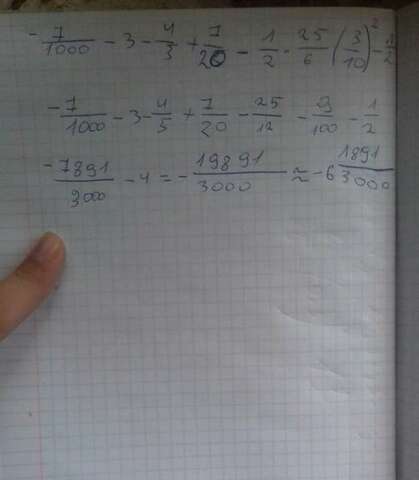 - 7/1000 - 3 - 4/3 + 7/20 - 1/2 · 25/6 (3/10)² - 1/2
- 7/1000 - 3 - 4/5 + 7/20 - 25/12 - 9/100 - 1/2
- 7891/3000 - 4 = - 19891/3000 ≈ - 6 1891/3000